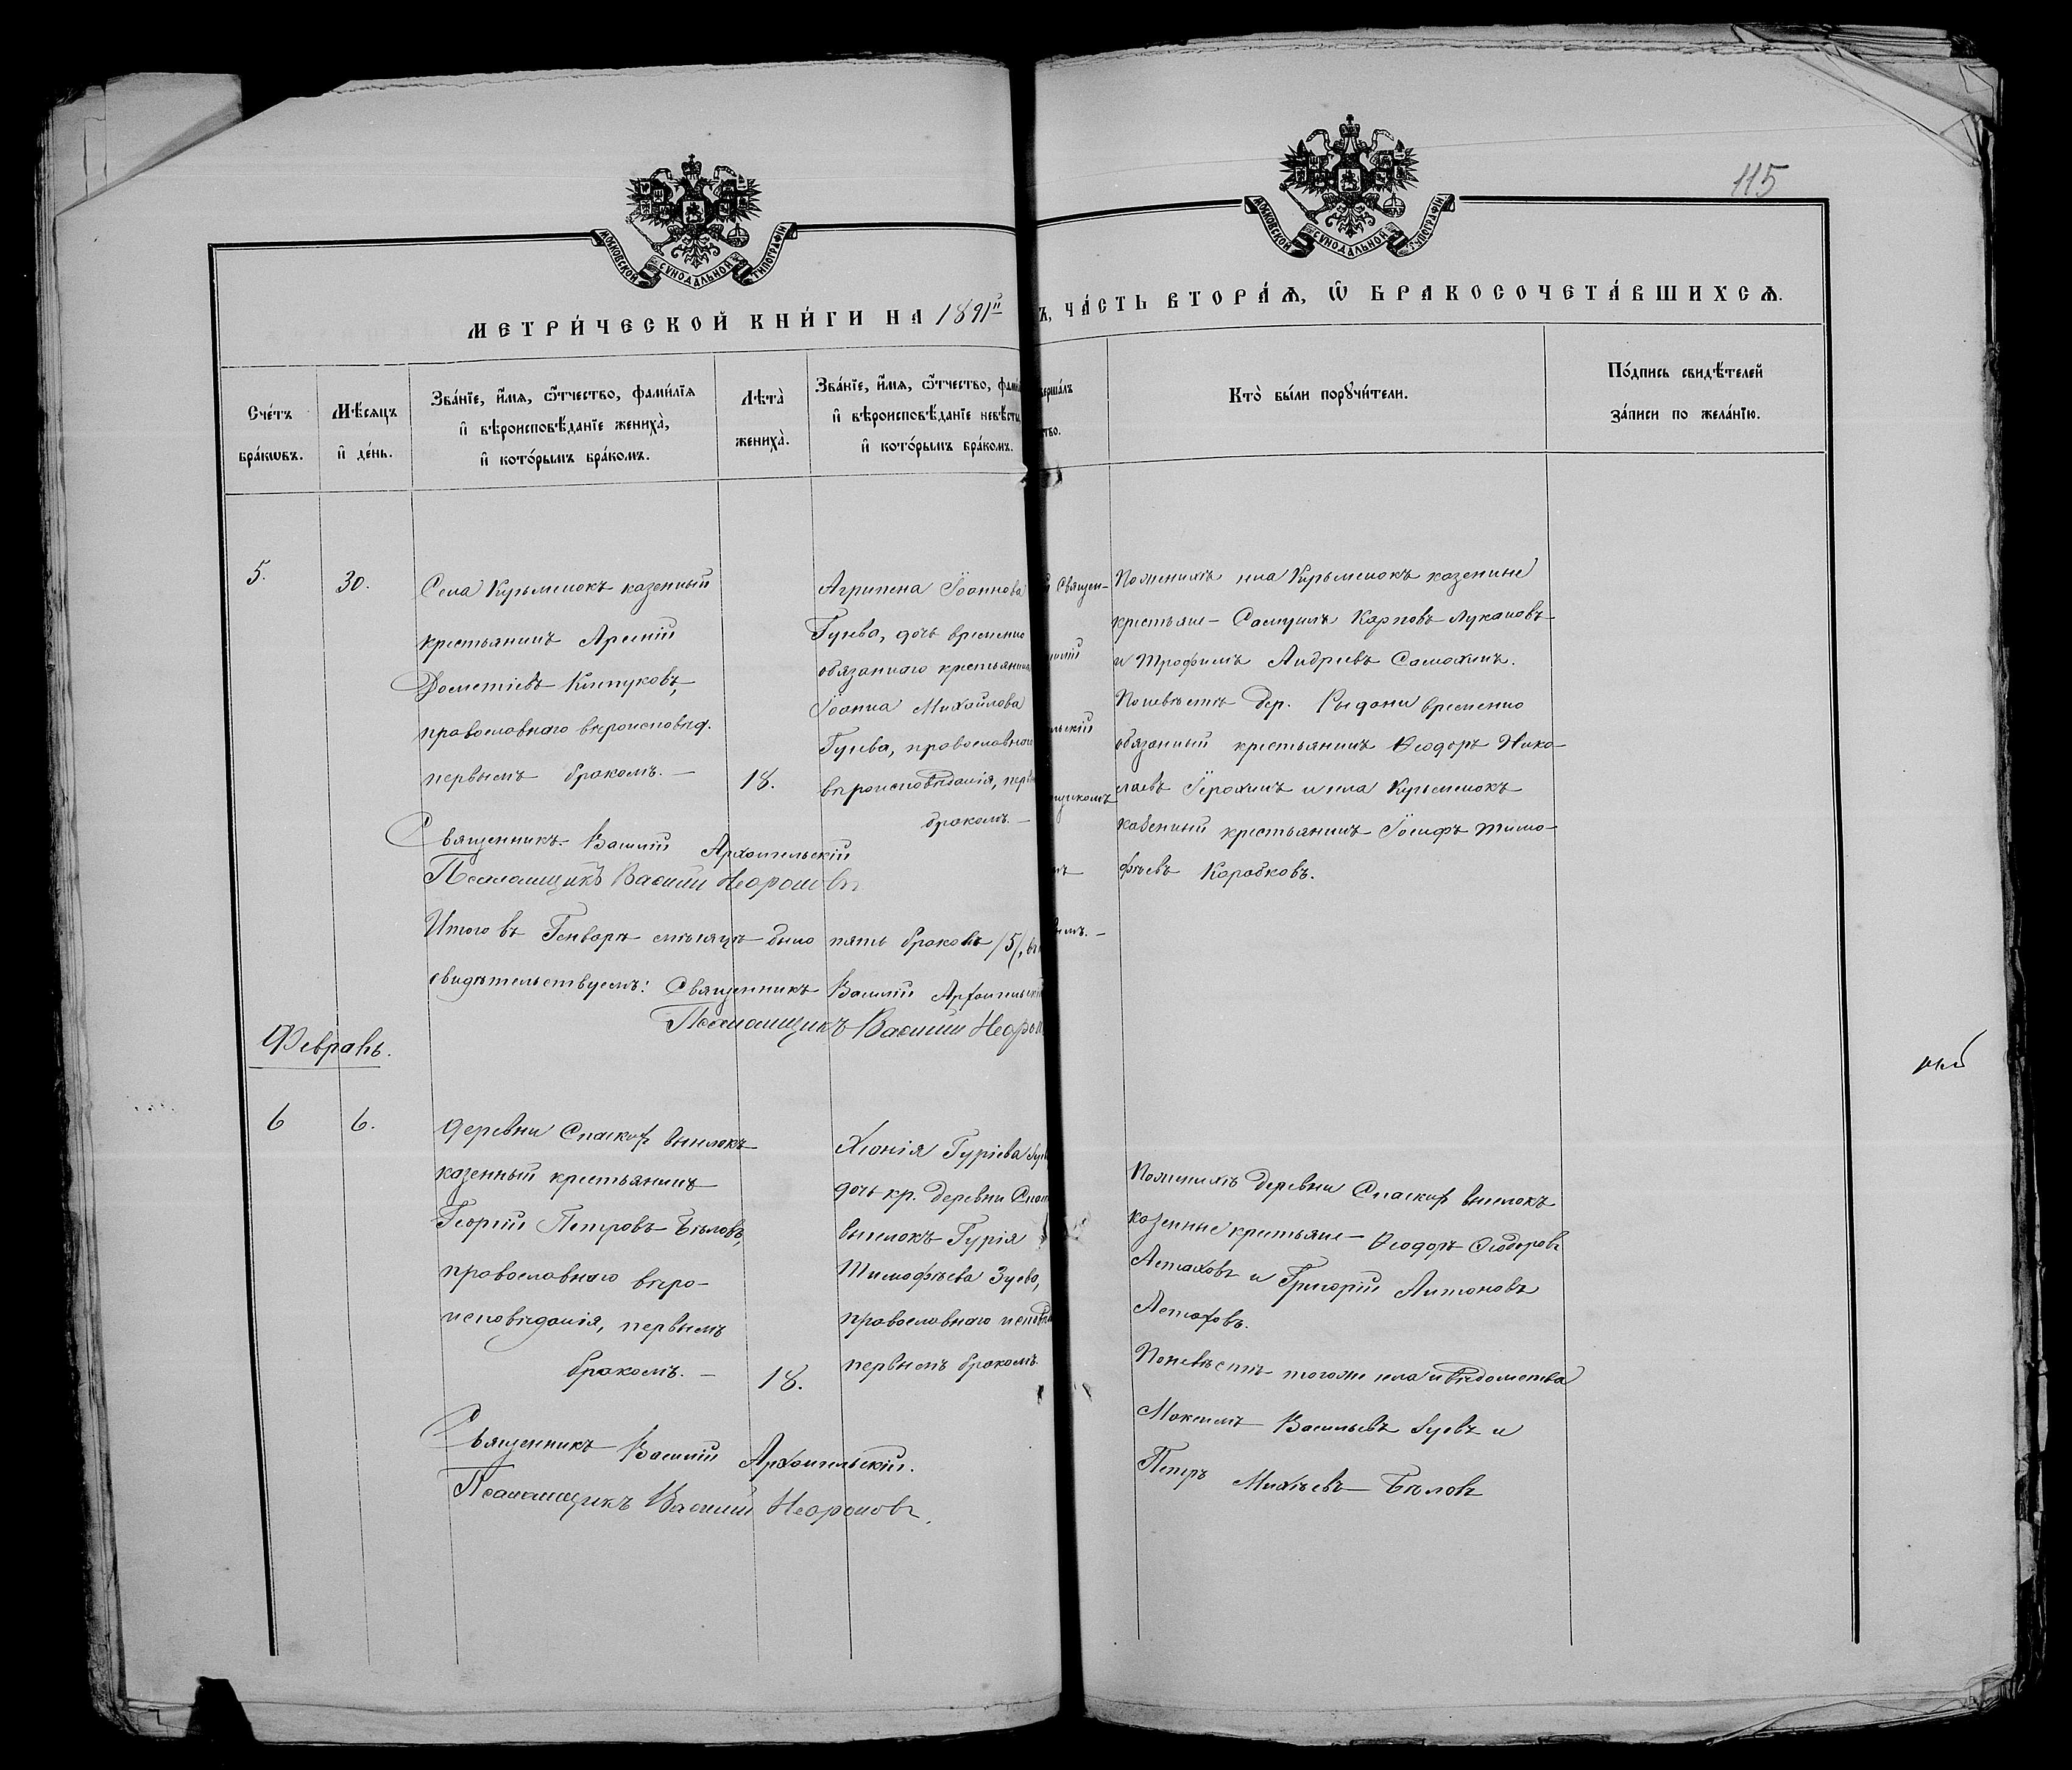 115
МОСКОВСКОЙ СУНОДАЛЬНОЙ ТИПОГРАФІИ
МОСКОВСКОЙ СУНОДАЛЬНОЙ ТИПОГРАФІИ
МЕТРИ́ЧЕСКОЙ КНИ́ГИ НА 1891й
Ъ, ЧА́СТЬ ВТОРА́Ѧ, Ѡ БРАКОСОЧЕТА́ВШИХСѦ.
Сче́тъ
бра́кѡвъ.
Мѣ́сѧцъ
и҆ де́нь.
Зва́нїе, и҆́мѧ, ѻ҆́тчество, фами́лїѧ
и҆ вѣроисповѣ́данїе жениха̀,
и҆ кото́рымъ бра́комъ.
Лѣта̀
жениха̀.
Зва́нїе, и҆́мѧ, ѻ҆́тчество, фами
и҆ вѣроисповѣ́данїе невѣ́сты
и҆ кото́рымъ бра́комъ.
верша́лъ
тво.
Кто̀ бы́ли порꙋчи́тели.
По́дпись свидѣ́телей
за́писи по жела́нїю.
5.
30.
Села Курьменокъ казенный
крестьянинъ Арсеній
Дометіевъ
православнаго вѣроисповѣд.
первымъ бракомъ. —
18.
Агрипена Іоаннова
дочь временно
обязаннаго крестьянина
Іоанна Михайлова
православнаго
вѣроисповѣданія, перв
бракомъ. —
й Священ-
льскій
щикомъ
Пожениху села Курьменокъ казенные
крестьяне — Самуилъ Карповъ Лукановъ
и Трофимъ Андреевъ Самохинъ.
Поневѣстѣ дер. временно
обязанный крестьянинъ Ѳеодоръ Нико-
лаевъ Ерохинъ и села Курьменокъ
казенный крестьянинъ Іосифъ Тимо-
фѣевъ Коробковъ.
Священникъ Василій Архангельскій
Псаломщикъ Василій Неароновъ
Итого въ Генварѣ мѣсяцѣ было пять браковъ /5/, въ
свидѣтельствуемъ: Священникъ Василій Архангельскій
Псаломщикъ Василій Неарон
Февраль.
6
6.
Деревни Спаских выселокъ
казенный крестьянинъ
Георгій Петровъ Бѣловъ,
православнаго вѣро-
исповѣданія, первымъ
бракомъ. —
18.
Хіонія Гуріева
дочь кр. деревни Спас
выселокъ Гурія
Тимофѣева Зуева,
православнаго исповѣд
первымъ бракомъ.
Пожениху деревни Спаских выселокъ
казенные крестьяне — Ѳеодоръ Ѳеодоровъ
Астаховъ и Григорій Антоновъ
Астаховъ.
Поневѣстѣ тогоже села и вѣдомства
Максимъ Васильевъ Зуевъ и
Петръ Михѣевъ Бѣловъ
Священникъ Василій Архангельскій.
Псаломщикъ Василій Неароновъ.